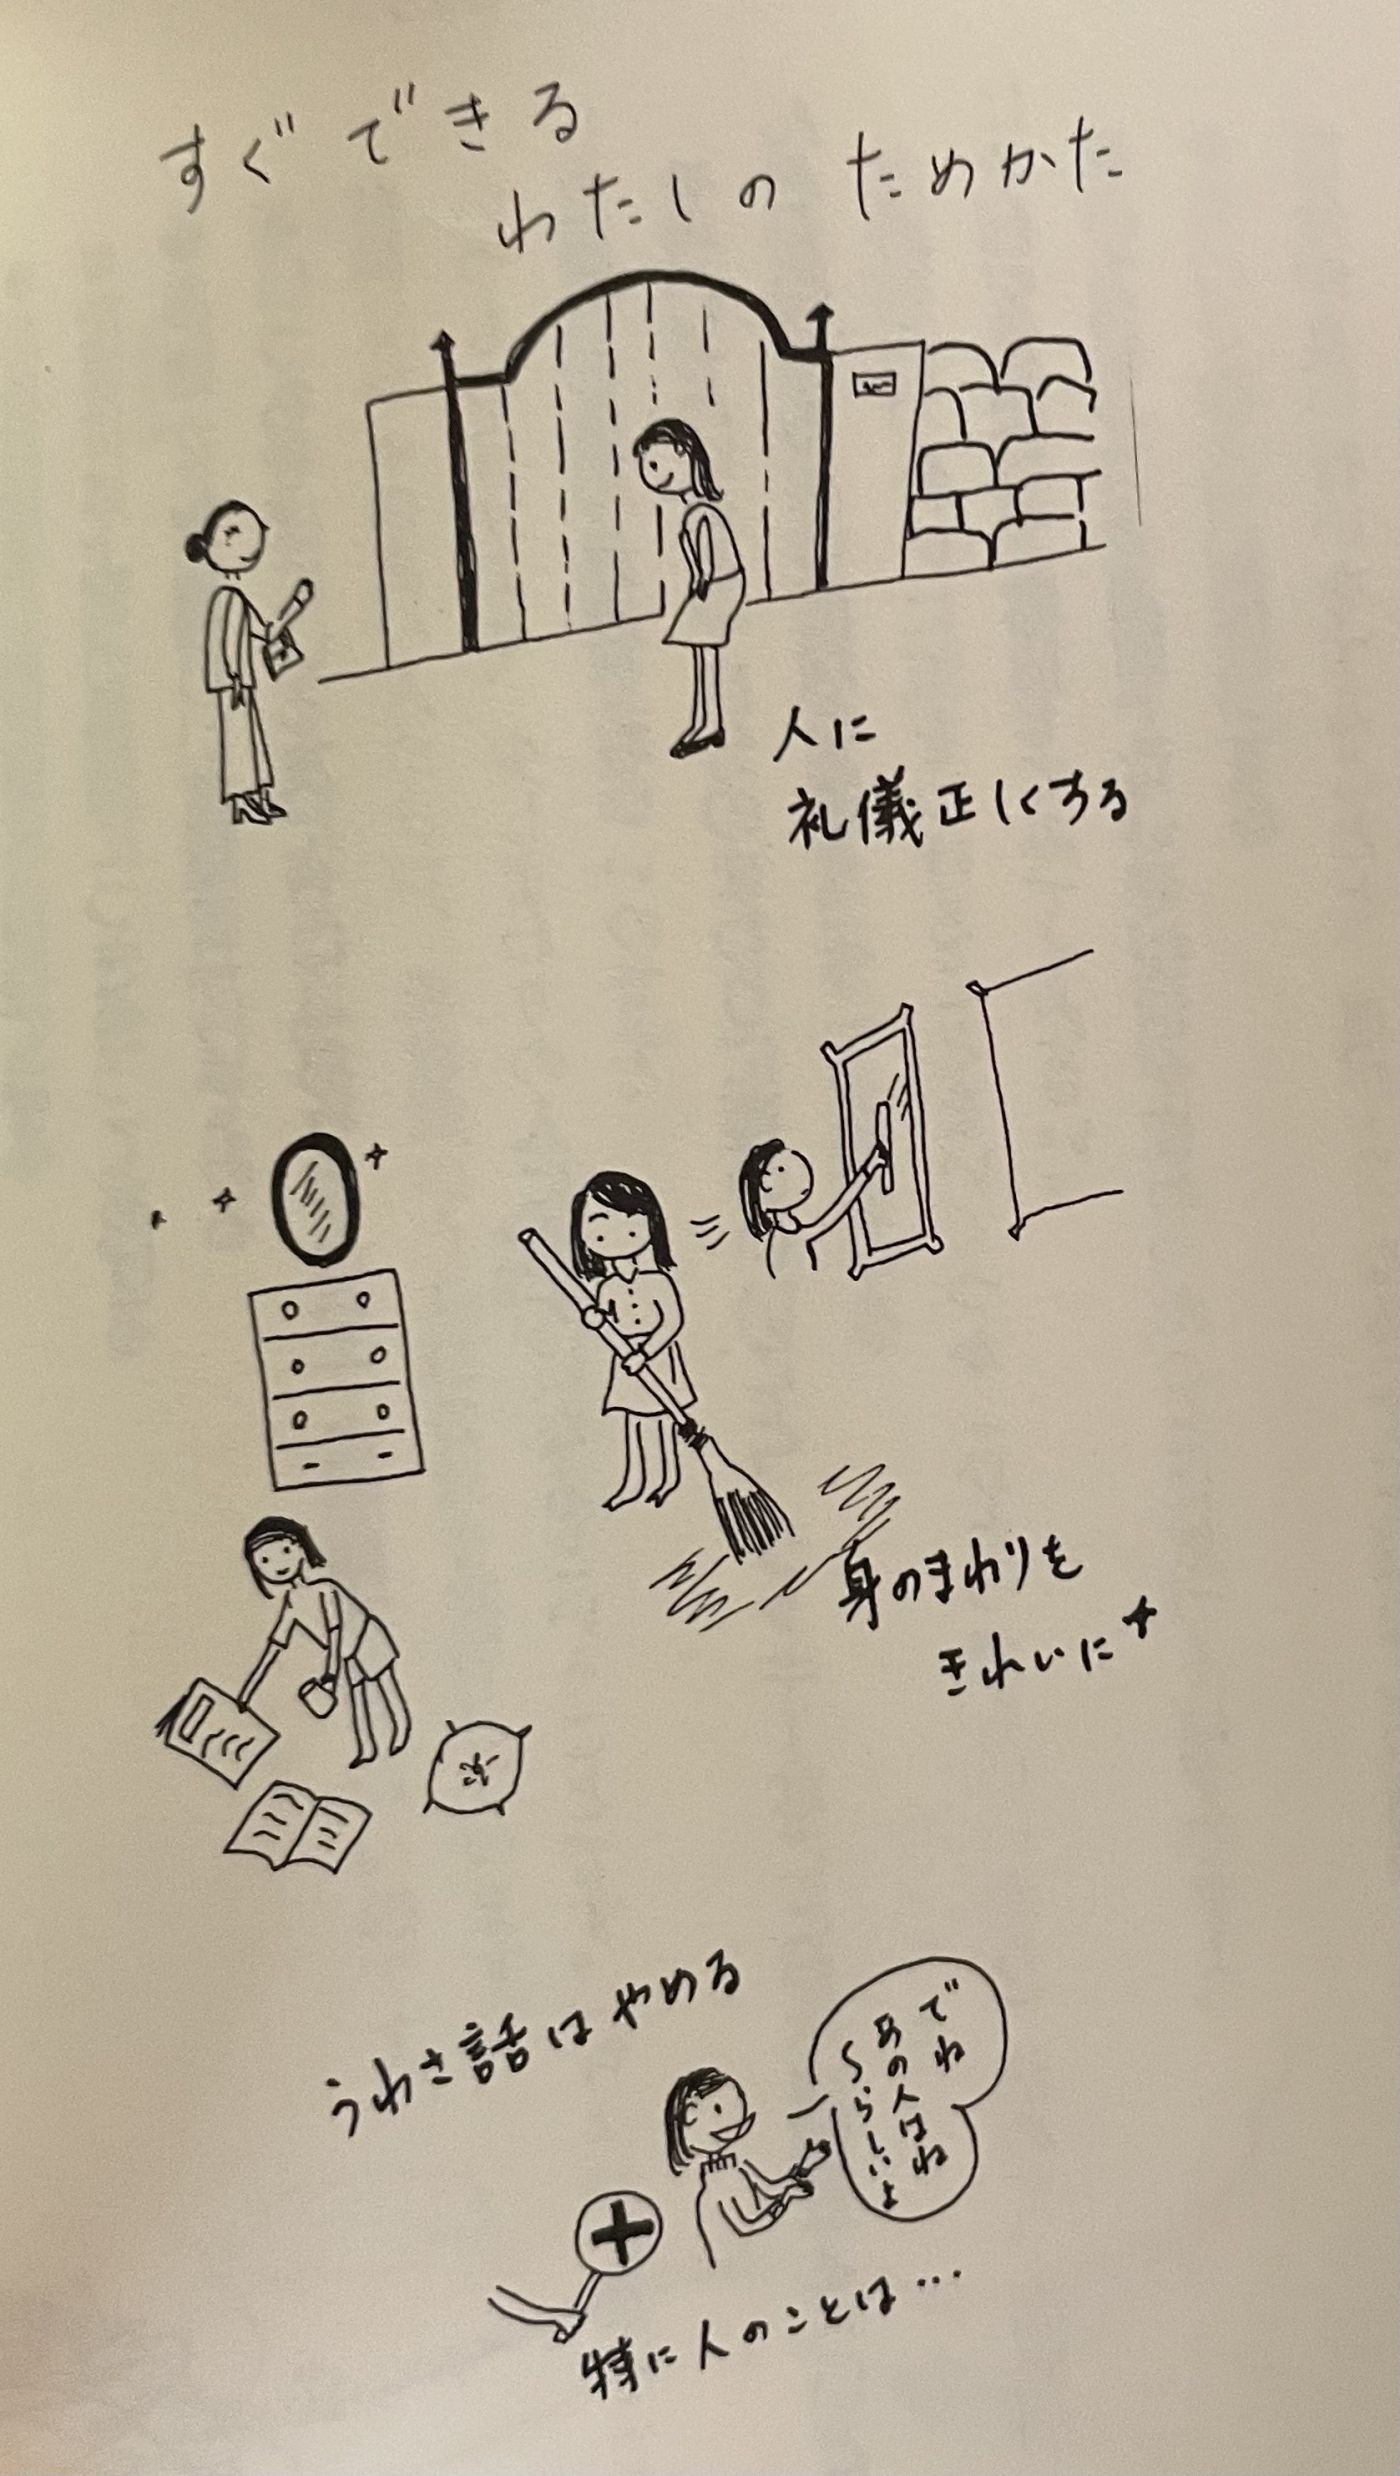 すぐできる
わたしの ためかた
人に
礼儀正しくする
身のまわりを
きれいに
うわさ話はやめる
でね
あの人はね
〜らしいよ
特に人のことは…